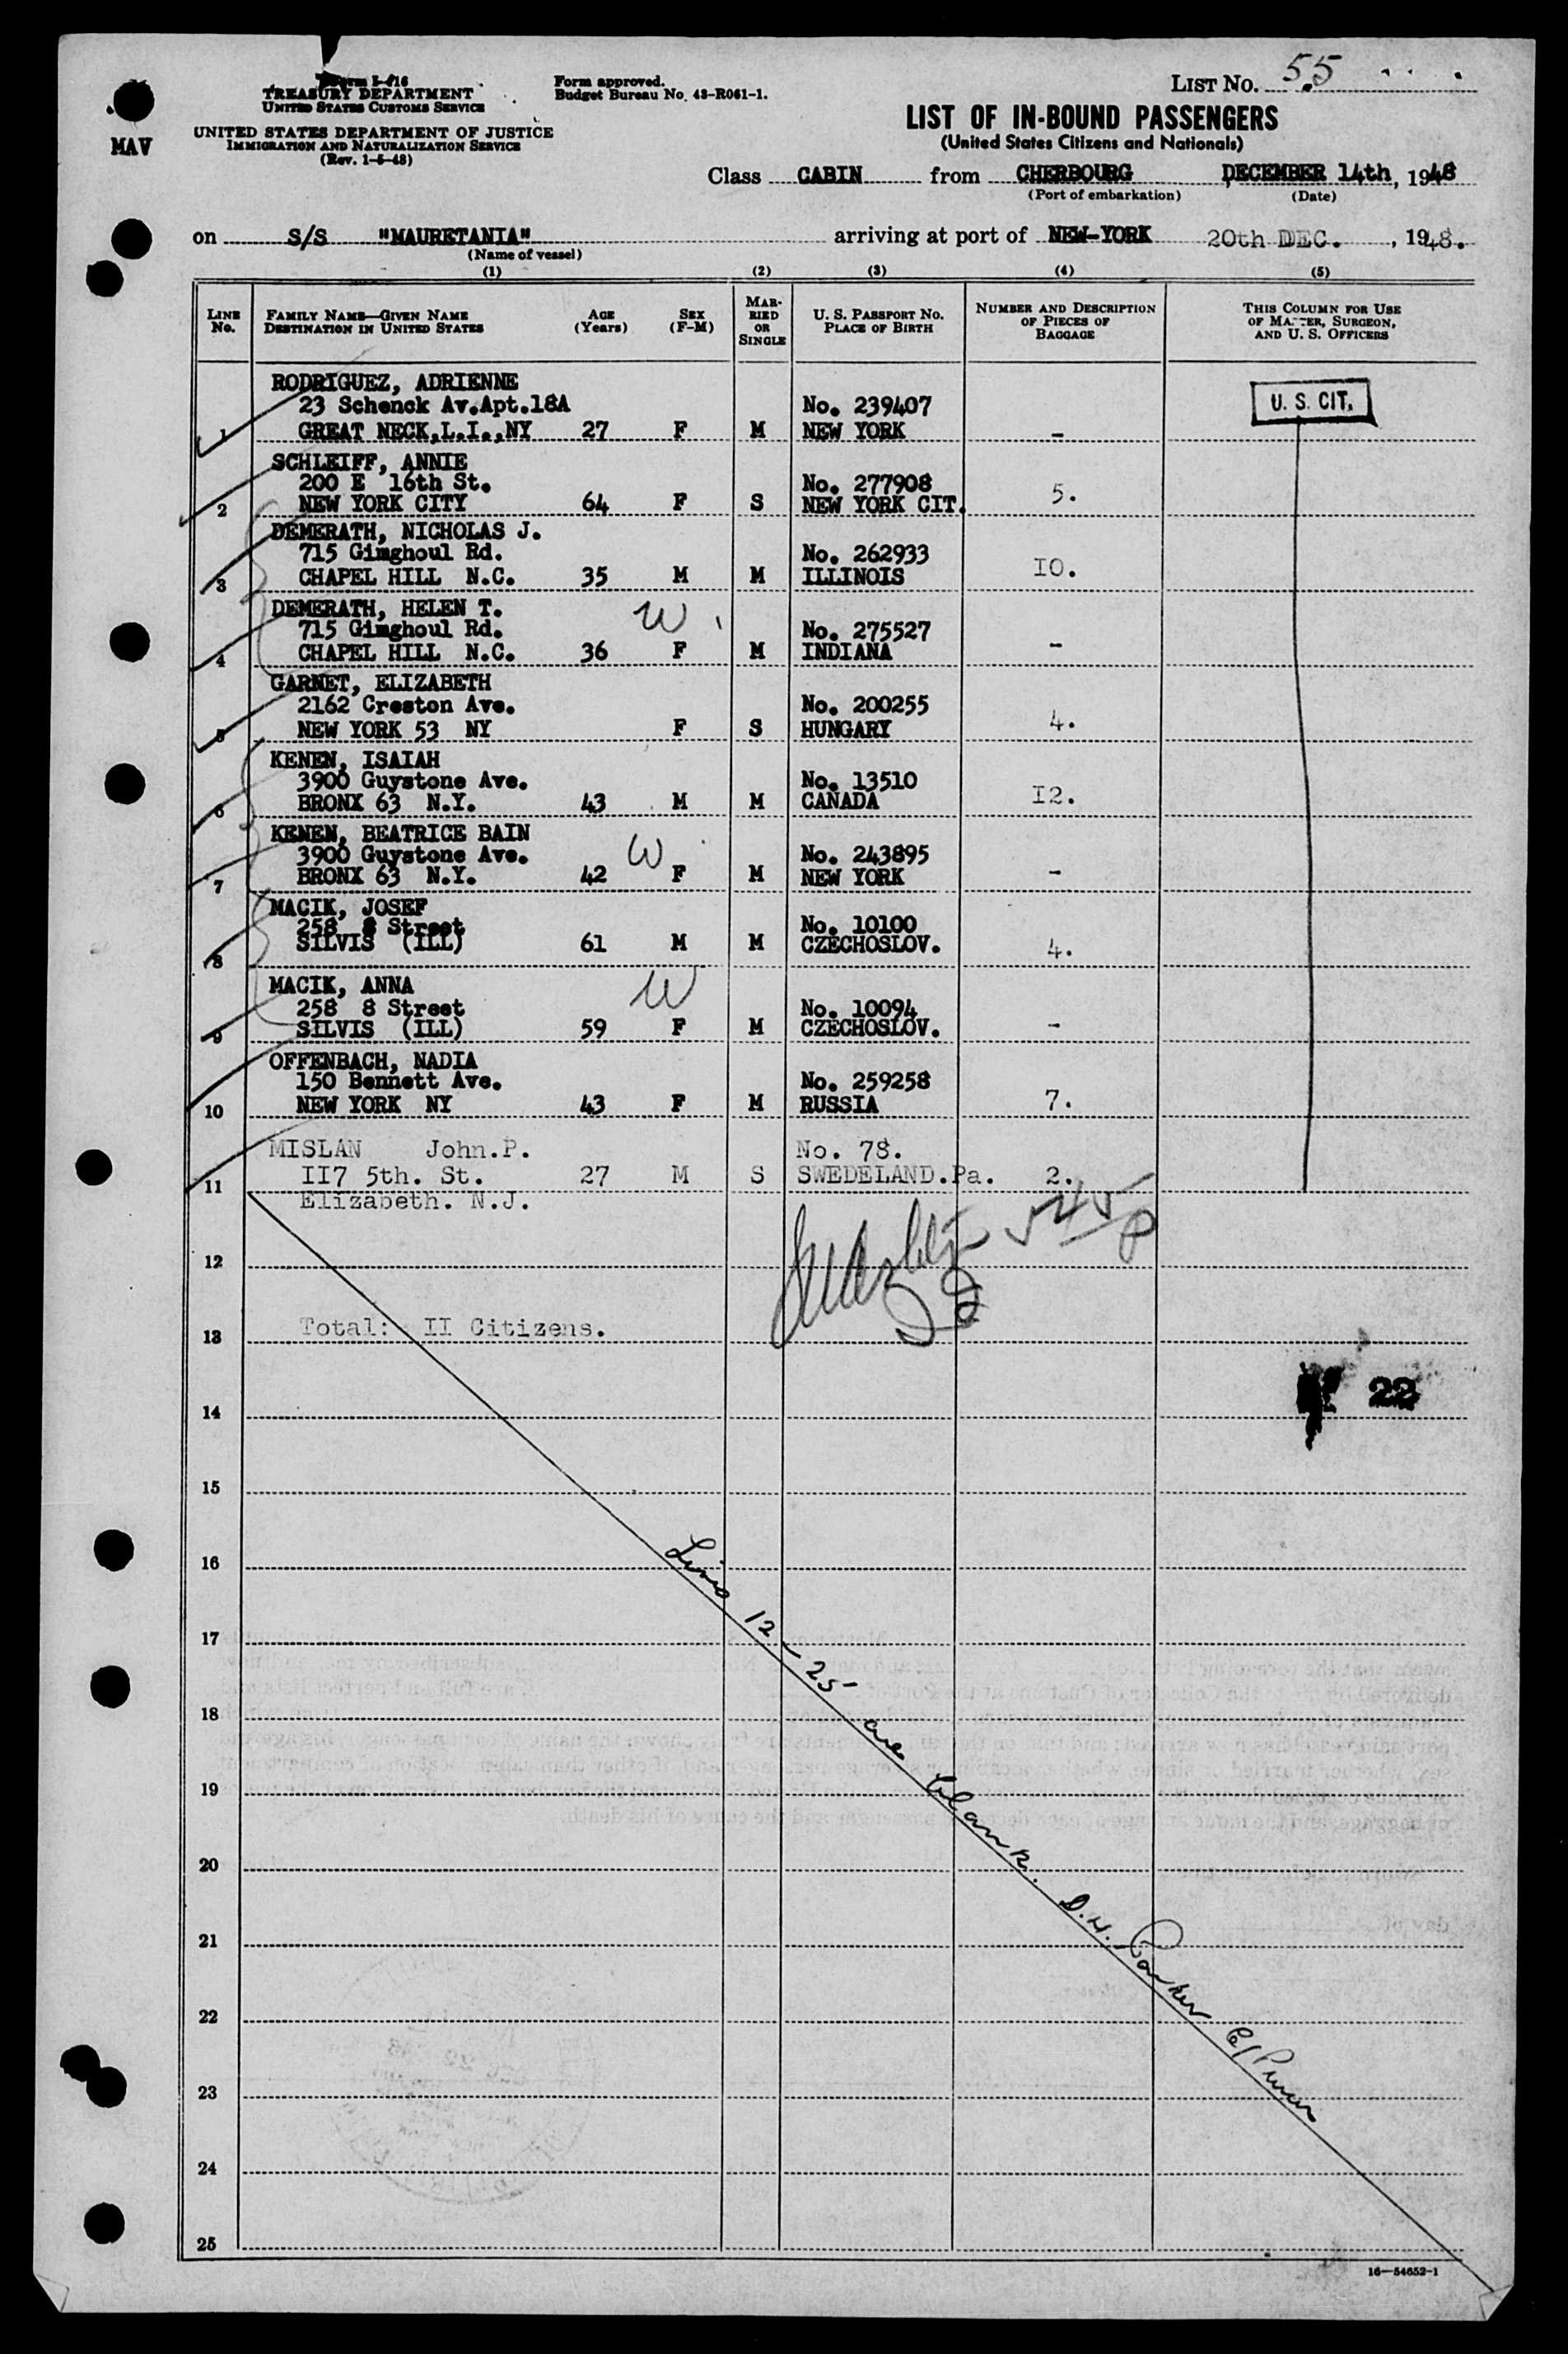 Form I-416
TREASURY DEPARTMENT
UNITED STATES CUSTOMS SERVICE
UNITED STATES DEPARTMENT OF JUSTICE
IMMIGRATION AND NATURALIZATION SERVICE
(Rev. 1-5-48)
Form approved.
Budget Bureau No. 43-R061-1.
MAV
LIST No. 55
LIST OF IN-BOUND PASSENGERS
(United States Citizens and Nationals)
Class CABIN from CHERBOURG DECEMBER 14th, 1948
(Port of embarkation) (Date)
on S/S "MAURETANIA" arriving at port of NEW-YORK 20th DEC., 1948.
(Name of vessel)
(1) (2) (3) (4) (5)
LINE No. FAMILY NAME—GIVEN NAME DESTINATION IN UNITED STATES AGE (Years) SEX (F-M) MARRIED OR SINGLE U. S. PASSPORT No. PLACE OF BIRTH NUMBER AND DESCRIPTION OF PIECES OF BAGGAGE THIS COLUMN FOR USE OF MASTER, SURGEON, AND U. S. OFFICERS
RODRIGUEZ, ADRIENNE
23 Schenck Av.Apt.18A No. 239407 U. S. CIT.
1 GREAT NECK,L.I.,NY 27 F M NEW YORK -
SCHLEIFF, ANNIE
200 E 16th St. No. 277908
2 NEW YORK CITY 64 F S NEW YORK CIT. 5.
DEMERATH, NICHOLAS J.
715 Gimghoul Rd. No. 262933
3 CHAPEL HILL N.C. 35 M M ILLINOIS IO.
DEMERATH, HELEN T. W
715 Gimghoul Rd. No. 275527
4 CHAPEL HILL N.C. 36 F M INDIANA -
GARNET, ELIZABETH
2162 Creston Ave. No. 200255
5 NEW YORK 53 NY F S HUNGARY 4.
KENEN, ISAIAH
3900 Guystone Ave. No. 13510
6 BRONX 63 N.Y. 43 M M CANADA I2.
KENEN, BEATRICE BAIN
3900 Guystone Ave. W No. 243895
7 BRONX 63 N.Y. 42 F M NEW YORK -
MACIK, JOSEF
258 8 Street No. 10100
8 SILVIS (ILL) 61 M M CZECHOSLOV. 4.
MACIK, ANNA W
258 8 Street No. 10094
9 SILVIS (ILL) 59 F M CZECHOSLOV. -
OFFENBACH, NADIA
150 Bennett Ave. No. 259258
10 NEW YORK NY 43 F M RUSSIA 7.
MISLAN John.P. No. 78.
11 II7 5th. St. 27 M S SWEDELAND.Pa. 2.
Elizabeth. N.J.
12
13 Total: II Citizens.
22
14
15
16
17
18
19
20
21
22
23
24
25
Lines 12-25 are blank. D.H. Parker
16—54652-1